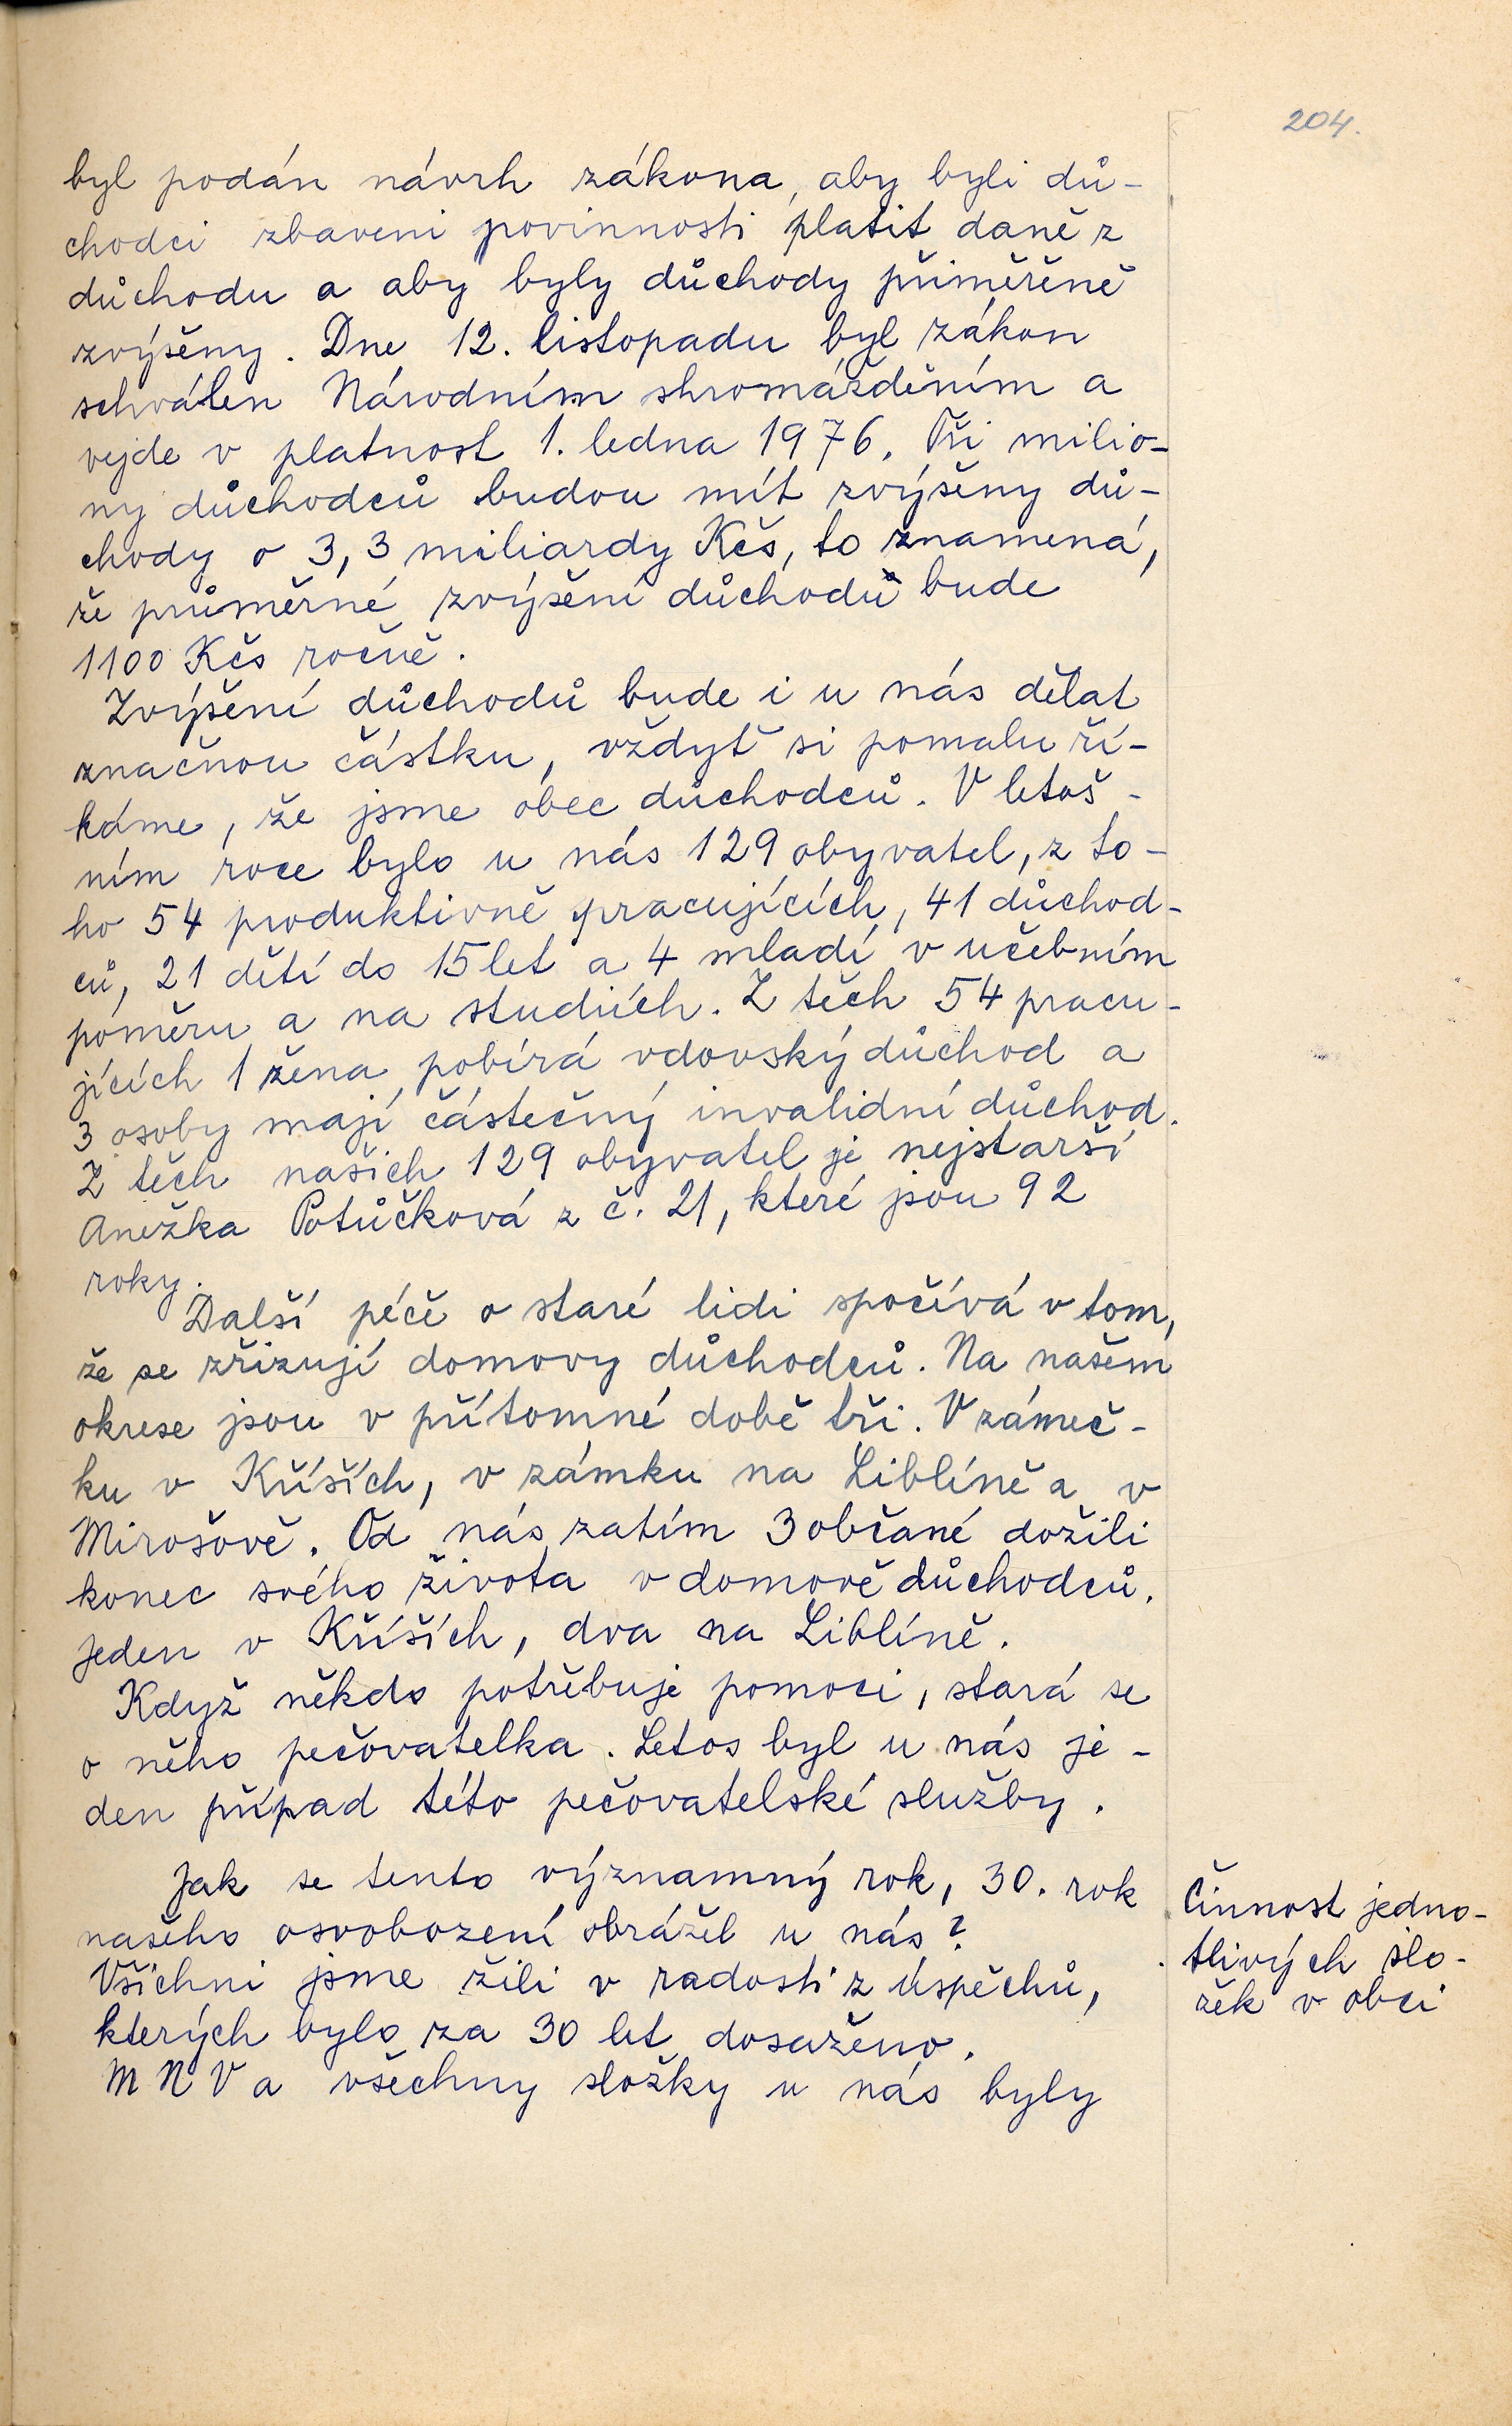 204.
byl podán návrh zákona, aby byli dů-
chodci zbaveni povinnosti platit daně z
důchodu a aby byly důchody přiměřeně
zvýšeny. Dne 12. listopadu byl zákon
schválen Národním shromážděním a
vejde v platnost 1. ledna 1976. Tři milio-
ny důchodců budou mít zvýšeny dů-
chody o 3,3 miliardy Kčs, to znamená,
že průměrné zvýšení důchodů bude
1100 Kčs ročně.
Zvýšení důchodů bude i u nás dělat
značnou částku, vždyť si pomalu ří-
káme, že jsme obec důchodců. V letoš-
ním roce bylo u nás 129 obyvatel, z to-
ho 54 produktivně pracujících, 41 důchod-
ců, 21 dětí do 15 let a 4 mladí v učebním
poměru a na studiích. Z těch 54 pracu-
jících 1 žena pobírá vdovský důchod a
3 osoby mají částečný invalidní důchod.
Z těch našich 129 obyvatel je nejstarší
Anežka Potůčková z č. 21, které jsou 92
roky.
Další péče o staré lidi spočívá v tom,
že se zřizují domovy důchodců. Na našem
okrese jsou v přítomné době tři. V zámeč-
ku v Kříších, v zámku na Liblíně a v
Mirošově. Od nás zatím 3 občané dožili
konec svého života v domově důchodců.
Jeden v Kříších, dva na Liblíně.
Když někdo potřebuje pomoci, stará se
o něho pečovatelka. Letos byl u nás je-
den případ této pečovatelské služby.
Jak se tento významný rok, 30. rok
našeho osvobození obrážel u nás?
Všichni jsme žili v radosti z úspěchů,
kterých bylo za 30 let dosaženo.
MNV a všechny složky u nás byly
Činnost jedno-
tlivých slo-
žek v obci